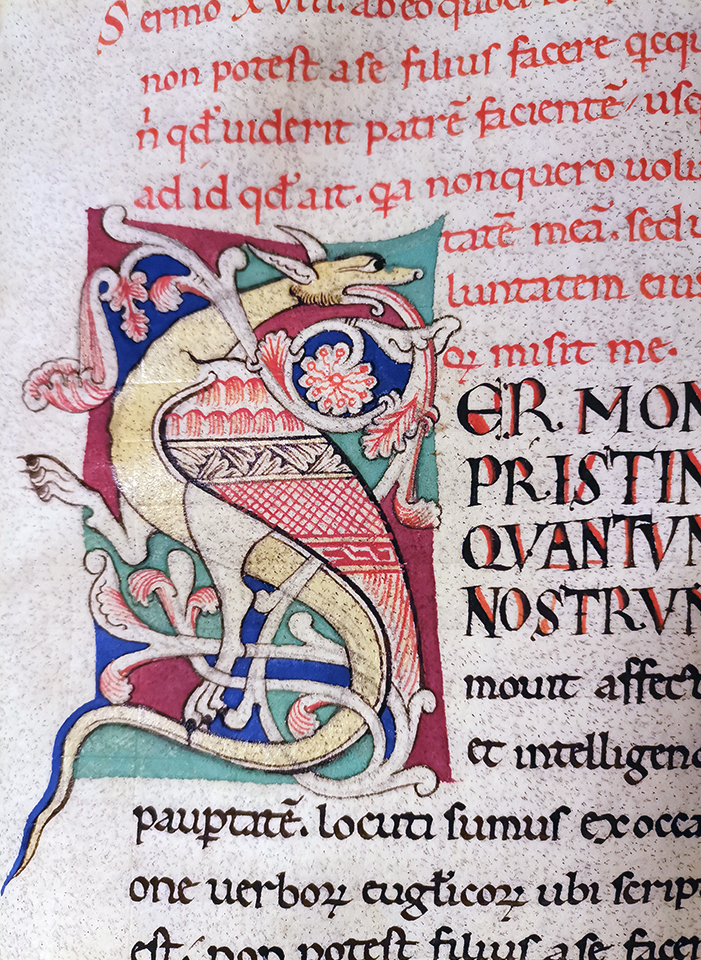 Sermo XVIII. ab eo quod
non potest a se filius facere qcqu
n qđ uiderit patrē facientē usq
ad id qđ ait. qa non quero uolu
tatē meā. sed u
luntatem eius
qui misit me.
ERMON
PRISTIN
QVANTVN
NOSTRVN
mouit affectu
et intelligenc
pauptatē. locuti sumus ex occa
one uerboꝝ eugłicoꝝ ubi script
est. non potest filius a se facer